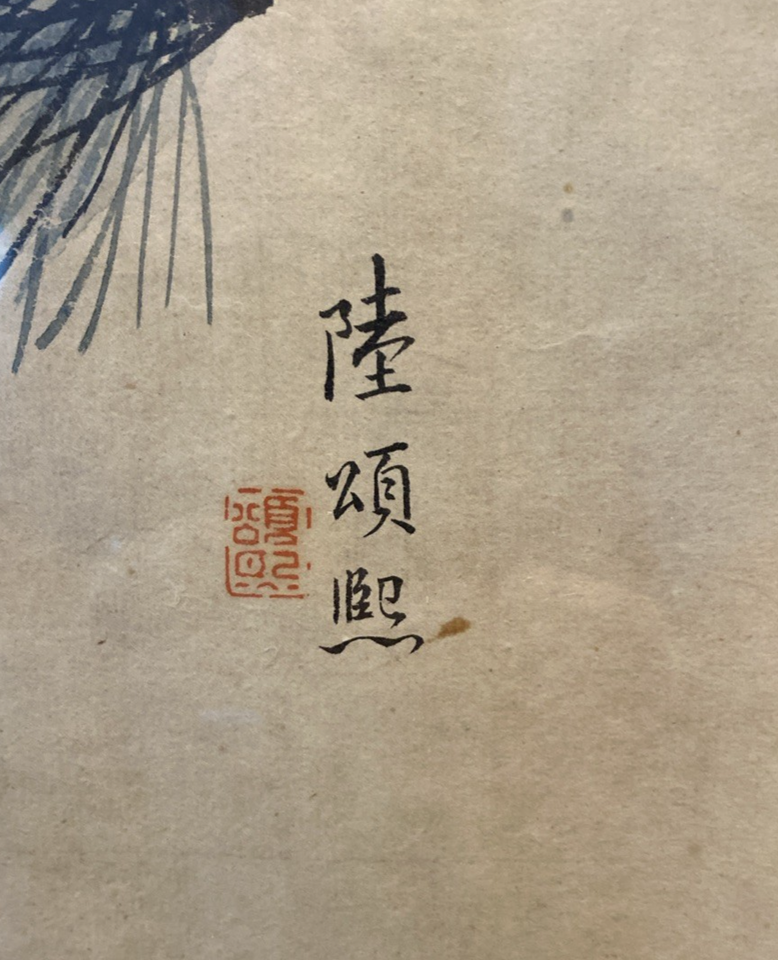 陸頌熙
頌熙